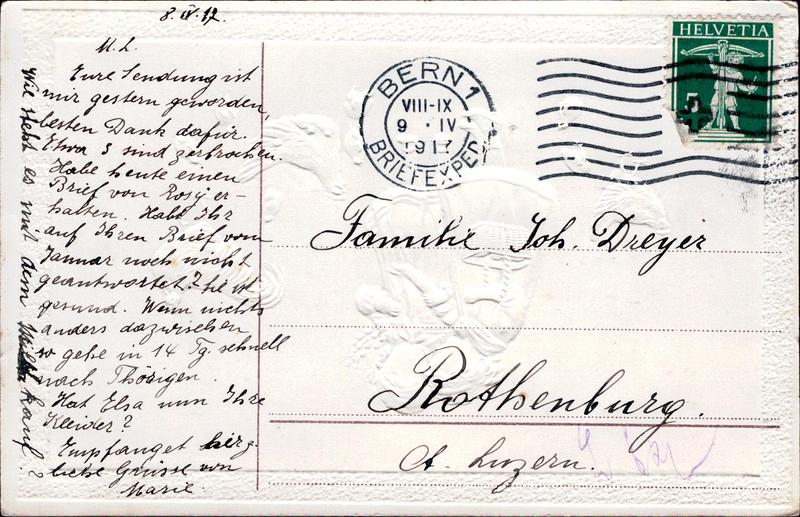 8. IV. 17
M. L.
Eure Sendung ist
mir gestern geworden,
besten Dank dafür.
Etwa 3 sind zerbrochen.
Habe heute einen
Brief von Rosy er-
halten. Habt Ihr
auf Ihren Brief vom
Januar noch nicht
geantwortet? Sie ist
gesund. Wenn nichts
anders dazwischen
so gehe in 14 Tg. schnell
nach Thörigen.
Hat Elsa nun Ihre
Kleider?
Empfanget herz-
liche Grüsse von
Marie.
Wie steht es mit dem kauf?
BERN 1
VIII-IX
9 · IV
1917
BRIEFEXPED
HELVETIA
5
Familie Joh. Dreyer
Rothenburg.
Ct. Luzern.